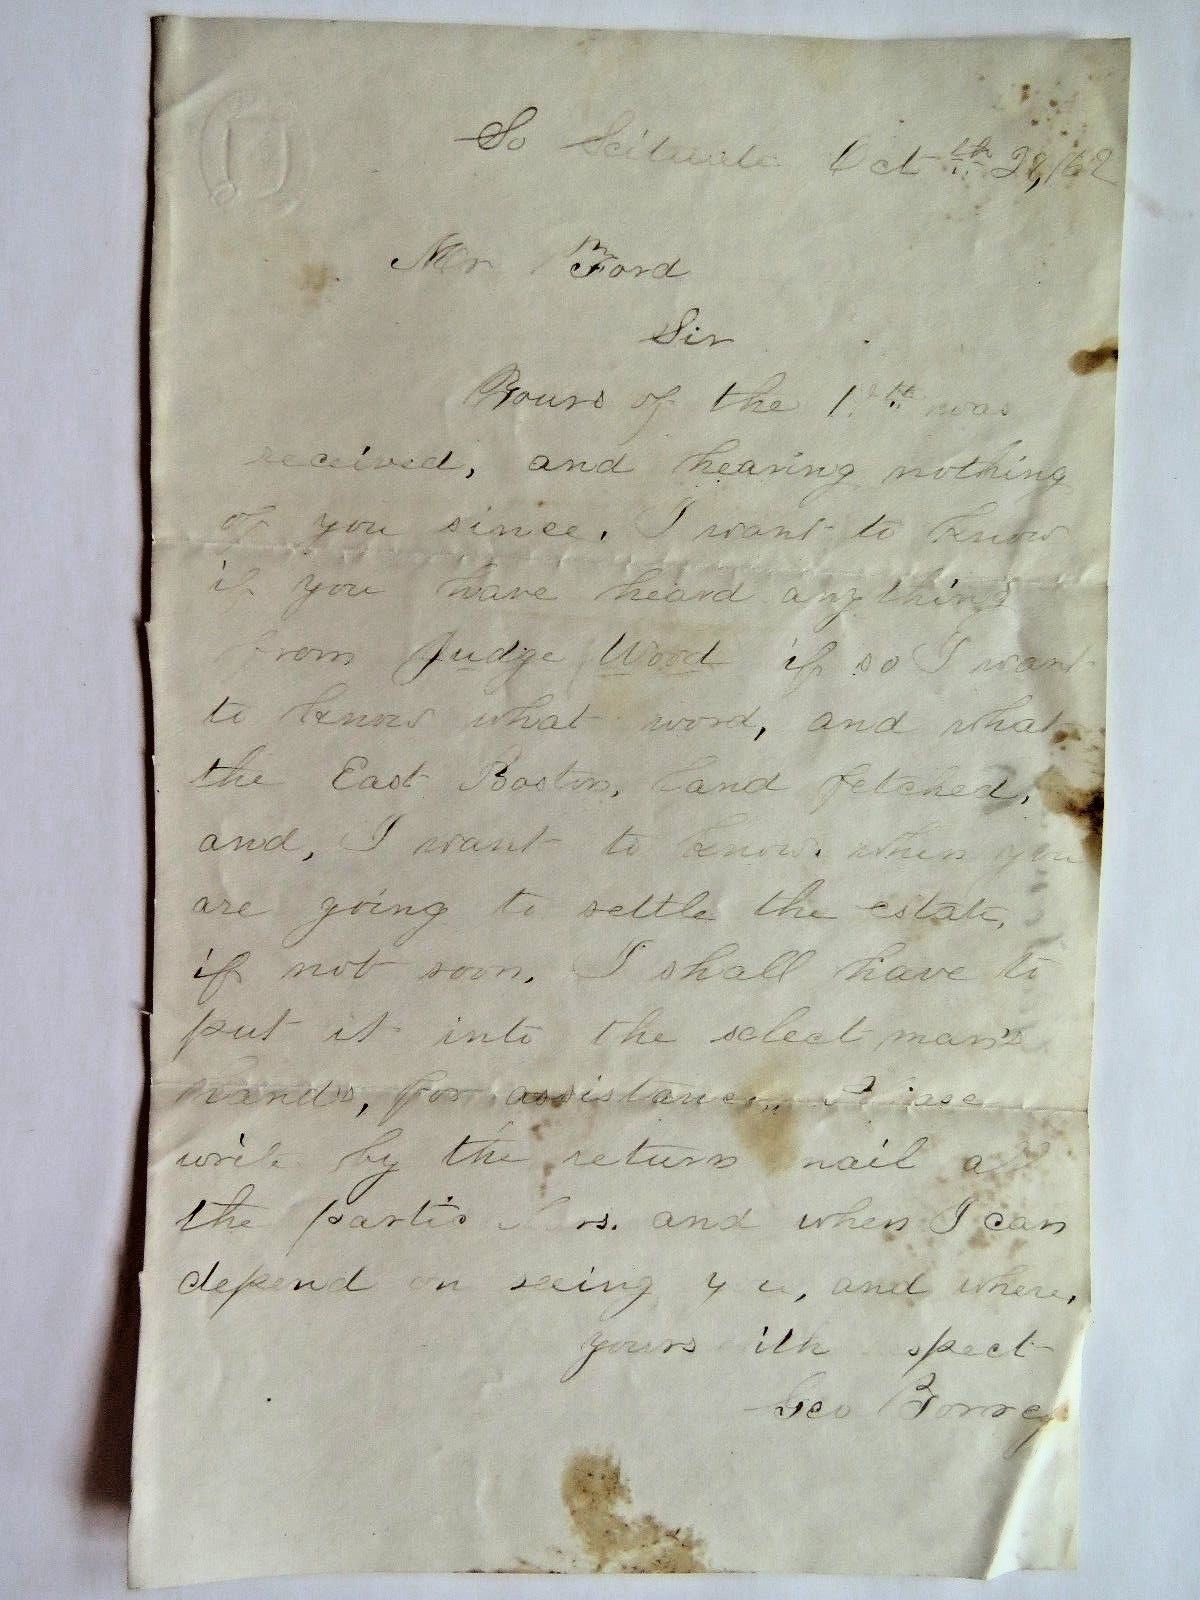 So Scituate Oct 28th, /62
Mr Ford
Sir
Yours of the was
received, and hearing nothing
of you since. I want to know
if you have heard anything
from Judge Wood if so I want
to know what word, and what
the East Boston, land fetched,
and, I want to know. when you
are going to settle the estate,
if not soon. I shall have to
put it into the select man's
hands, for assistance,, Please
write by the return mail all
the and when I can
depend on seeing you, and where,
yours with respect
Geo Torrey